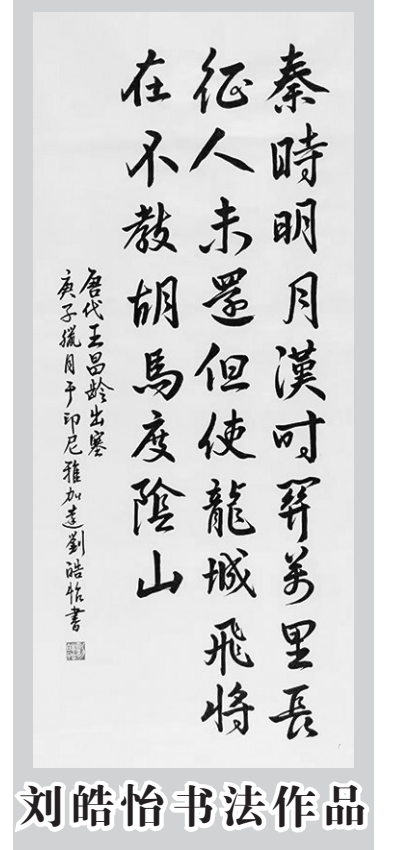 秦時明月漢时關萬里長
征人未還但使龍城飛將
在不教胡馬度陰山
唐代王昌龄出塞
庚子臘月于印尼雅加達劉皓怡書
刘皓怡书法作品